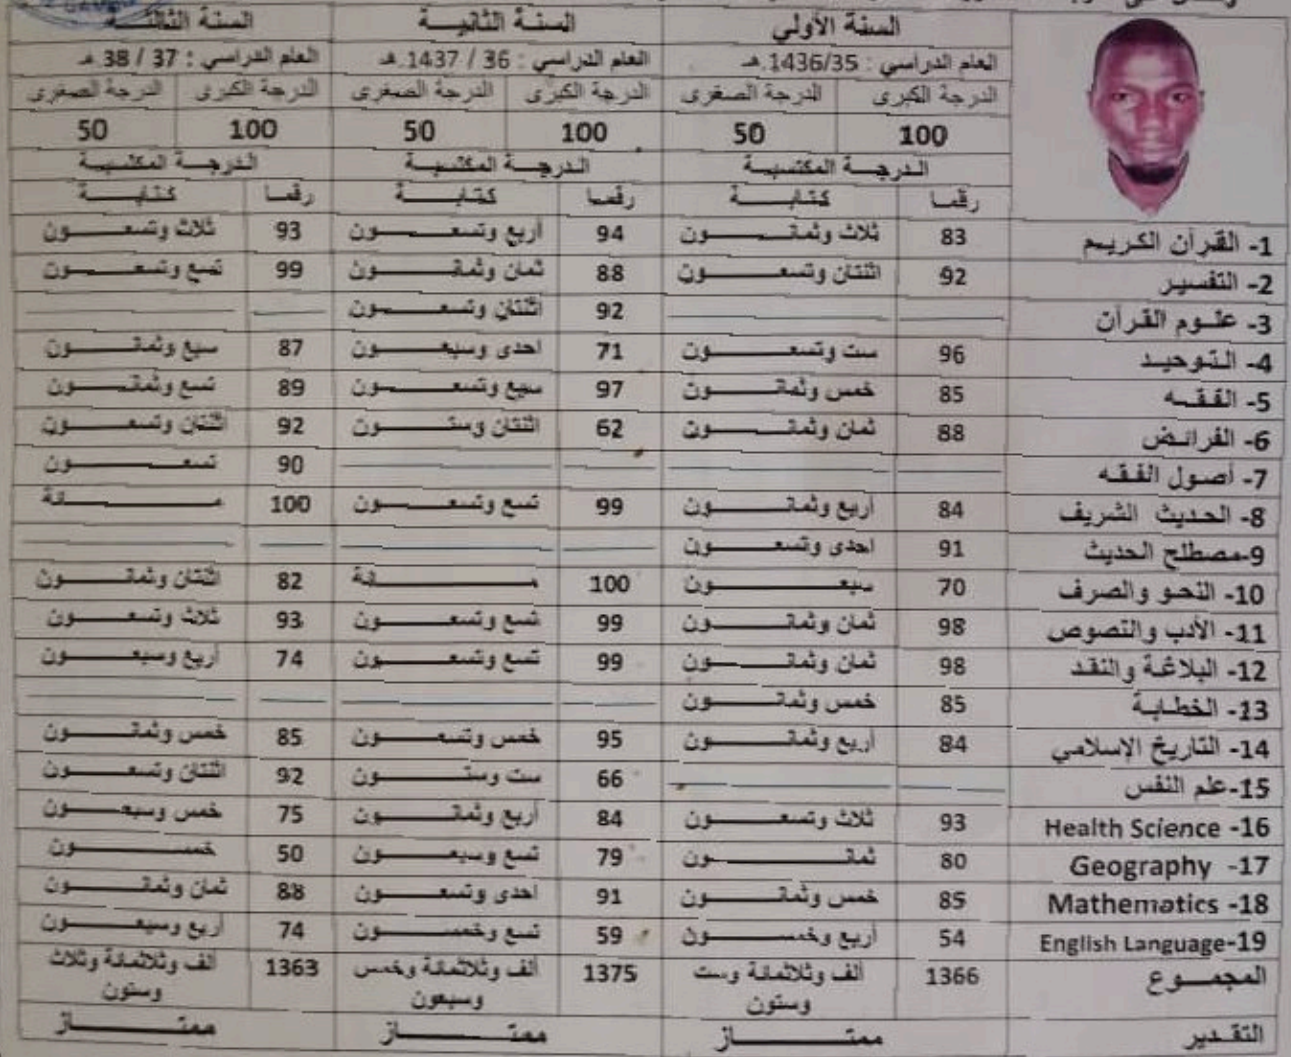 السنة الأولي السنة الثانية السنة الثالثة
العام الدراسي : 1436/35.هـ العام الدراسي : 36 / 1437.هـ العام الدراسي : 37 / 38.هـ
الدرجة الكبرى الدرجة الصغرى الدرجة الكبرى الدرجة الصغرى الدرجة الكبرى الدرجة الصغرى
100 50 100 50 100 50
الدرجة المكتسبة الدرجة المكتسبة الدرجة المكتسبة
رقما كتابة رقما كتابة رقما كتابة
1- القرآن الكريم 83 ثلاث وثمانون 94 أربع وتسعون 93 ثلاث وتسعون
2- التفسير 92 اثنتان وتسعون 88 ثمان وثمانون 99 تسع وتسعون
3- علوم القرآن 92 اثنتان وتسعون
4- التوحيد 96 ست وتسعون 71 احدى وسبعون 87 سبع وثمانون
5- الفقه 85 خمس وثمانون 97 سبع وتسعون 89 تسع وثمانون
6- الفرائض 88 ثمان وثمانون 62 اثنتان وستون 92 اثنتان وتسعون
7- أصول الفقه 90 تسعون
8- الحديث الشريف 84 أربع وثمانون 99 تسع وتسعون 100 مائة
9-مصطلح الحديث 91 احدى وتسعون
10- النحو والصرف 70 سبعون 100 مائة 82 اثنتان وثمانون
11- الأدب والنصوص 98 ثمان وثمانون 99 تسع وتسعون 93 ثلاث وتسعون
12- البلاغة والنقد 98 ثمان وثمانون 99 تسع وتسعون 74 أربع وسبعون
13- الخطابة 85 خمس وثمانون
14- التاريخ الإسلامي 84 أربع وثمانون 95 خمس وتسعون 85 خمس وثمانون
15-علم النفس 66 ست وستون 92 اثنتان وتسعون
Health Science -16 93 ثلاث وتسعون 84 أربع وثمانون 75 خمس وسبعون
Geography -17 80 ثمانون 79 تسع وسبعون 50 خمسون
Mathematics -18 85 خمس وثمانون 91 احدى وتسعون 88 ثمان وثمانون
English Language-19 54 أربع وخمسون 59 تسع وخمسون 74 أربع وسبعون
المجموع 1366 ألف وثلاثمائة وست وستون 1375 ألف وثلاثمائة وخمس وسبعون 1363 ألف وثلاثمائة وثلاث وستون
التقدير ممتاز ممتاز ممتاز